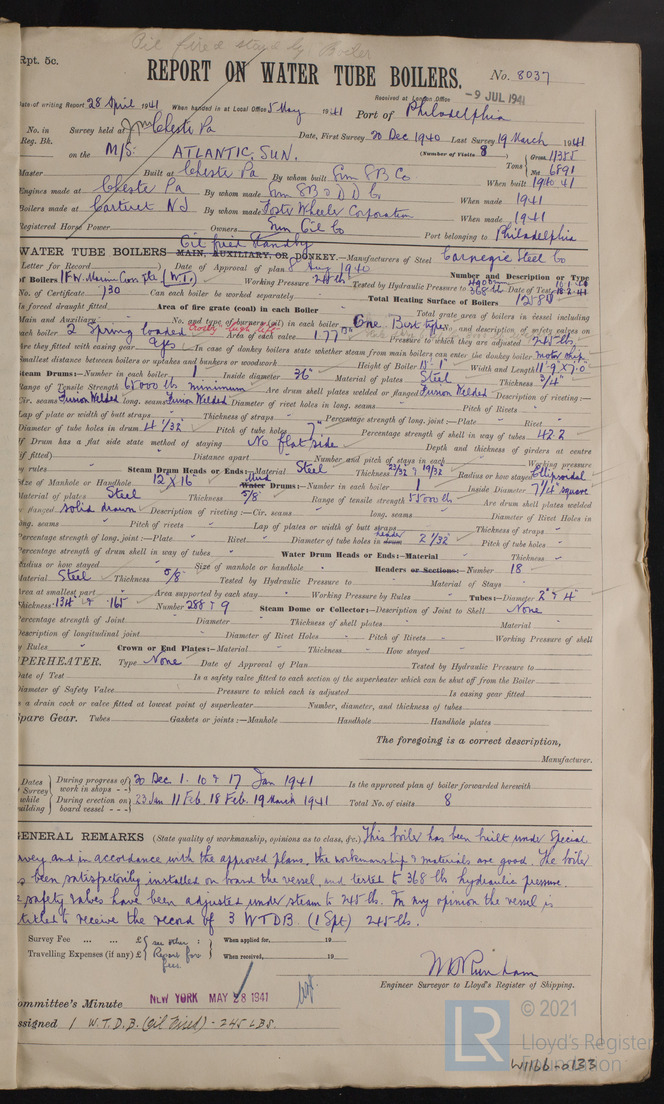 Oil fired stand by Boiler
Rpt. 5c.
REPORT ON WATER TUBE BOILERS. No. 8037
Received at London Office -9 JUL 1941
Date of writing Report 28 April 1941 When handed in at Local Office 5 May 1941 Port of Philadelphia
No. in Survey held at Chester Pa Date, First Survey 20 Dec 1940 Last Survey 19 March 1941
Reg. Bk. (Number of Visits 8)
on the M/S: ATLANTIC SUN. Tons Gross 11355 Net 6891
Master Built at Chester Pa By whom built Sun SB Co When built 1940 41
Engines made at Chester Pa By whom made Sun SB & DD Co When made 1941
Boilers made at Carteret NJ By whom made Foster Wheeler Corporation When made 1941
Registered Horse Power Owners Sun Oil Co Port belonging to Philadelphia
Oil fired Standby
WATER TUBE BOILERS MAIN, AUXILIARY, OR DONKEY.—Manufacturers of Steel Carnegie Steel Co
Letter for Record Date of Approval of plan 8 Aug 1940 Number and Description or Type
of Boilers 1 F.W. (W.T.) Working Pressure 245 lb Tested by Hydraulic Pressure to 368 lb Date of Test
No. of Certificate 130 Can each boiler be worked separately Total Heating Surface of Boilers
Is forced draught fitted Area of fire grate (coal) in each Boiler Total grate area of boilers in vessel including
Main and Auxiliary No. and type of burners (oil) in each boiler One Best type No. and description of safety valves on
each boiler 2 Spring loaded Area of each valve 1.77 Pressure to which they are adjusted 245 lbs
Are they fitted with easing gear Yes In case of donkey boilers state whether steam from main boilers can enter the donkey boiler motor ship
Smallest distance between boilers or uptakes and bunkers or woodwork Height of Boiler Width and Length 11'-9 x 7-0
Steam Drums:—Number in each boiler 1 Inside diameter 36" Material of plates Steel Thickness 3/4"
Range of Tensile Strength 65000 lb minimum Are drum shell plates welded or flanged Fusion Welded Description of riveting:—
Cir. seams Fusion Welded long. seams Fusion Welded Diameter of rivet holes in long. seams Pitch of Rivets
Lap of plate or width of butt straps Thickness of straps Percentage strength of long. joint:—Plate Rivet
Diameter of tube holes in drum 4 1/32" Pitch of tube holes 7" Percentage strength of shell in way of tubes 42.2
If Drum has a flat side state method of staying No flat side Depth and thickness of girders at centre
(if fitted) Distance apart Number and pitch of stays in each Working pressure
by rules Steam Drum Heads or Ends:—Material Steel Thickness 23/32 & 19/32 Radius or how stayed Ellipsoidal
Size of Manhole or Handhole 12 X 16" Mud Water Drums:—Number in each boiler 1 Inside Diameter 7 1/4" square
Material of plates Steel Thickness 5/8" Range of tensile strength 55000 lb Are drum shell plates welded
or flanged solid drawn Description of riveting:—Cir. seams long. seams Diameter of Rivet Holes in
long. seams Pitch of rivets Lap of plates or width of butt straps Thickness of straps
Percentage strength of long. joint:—Plate Rivet Diameter of tube holes in header drum 2 1/32 Pitch of tube holes
Percentage strength of drum shell in way of tubes Water Drum Heads or Ends:—Material Thickness
Radius or how stayed Size of manhole or handhole Headers or Sections:—Number 18
Material Steel Thickness 5/8 Tested by Hydraulic Pressure to Material of Stays
Area at smallest part Area supported by each stay Working Pressure by Rules Tubes:—Diameter 2" & 4"
Thickness .134 & .165 Number 288 & 9 Steam Dome or Collector:—Description of Joint to Shell None
Percentage strength of Joint Diameter Thickness of shell plates Material
Description of longitudinal joint Diameter of Rivet Holes Pitch of Rivets Working Pressure of shell
by Rules Crown or End Plates:—Material Thickness How stayed
SUPERHEATER. Type None Date of Approval of Plan Tested by Hydraulic Pressure to
Date of Test Is a safety valve fitted to each section of the superheater which can be shut off from the Boiler
Diameter of Safety Valve Pressure to which each is adjusted Is easing gear fitted
Is a drain cock or valve fitted at lowest point of superheater Number, diameter, and thickness of tubes
Spare Gear. Tubes Gaskets or joints:—Manhole Handhole Handhole plates
The foregoing is a correct description,
Manufacturer.
Dates of Survey while building During progress of work in shops 20 Dec 1. 10 & 17 Jan 1941 Is the approved plan of boiler forwarded herewith
During erection on board vessel 23 Jan 11 Feb. 18 Feb. 19 March 1941 Total No. of visits 8
GENERAL REMARKS (State quality of workmanship, opinions as to class, &c.) This boiler has been built under Special
Survey and in accordance with the approved plans, the workmanship & materials are good. The boiler
has been satisfactorily installed on board the vessel, and tested to 368 lb hydraulic pressure.
The safety valves have been adjusted under steam to 245 lb. In my opinion the vessel is
entitled to receive the record of 3 WTDB (1 Spt) 245 lb.
Survey Fee £ see other When applied for, 19
Travelling Expenses (if any) £ Report for fees. When received, 19
Engineer Surveyor to Lloyd's Register of Shipping.
Committee's Minute NEW YORK MAY 28 1941
Assigned 1 W.T.D.B. (Oil Fired) - 245 LBS.
© 2021
LR Lloyd's Register
Foundation
W1166-0133